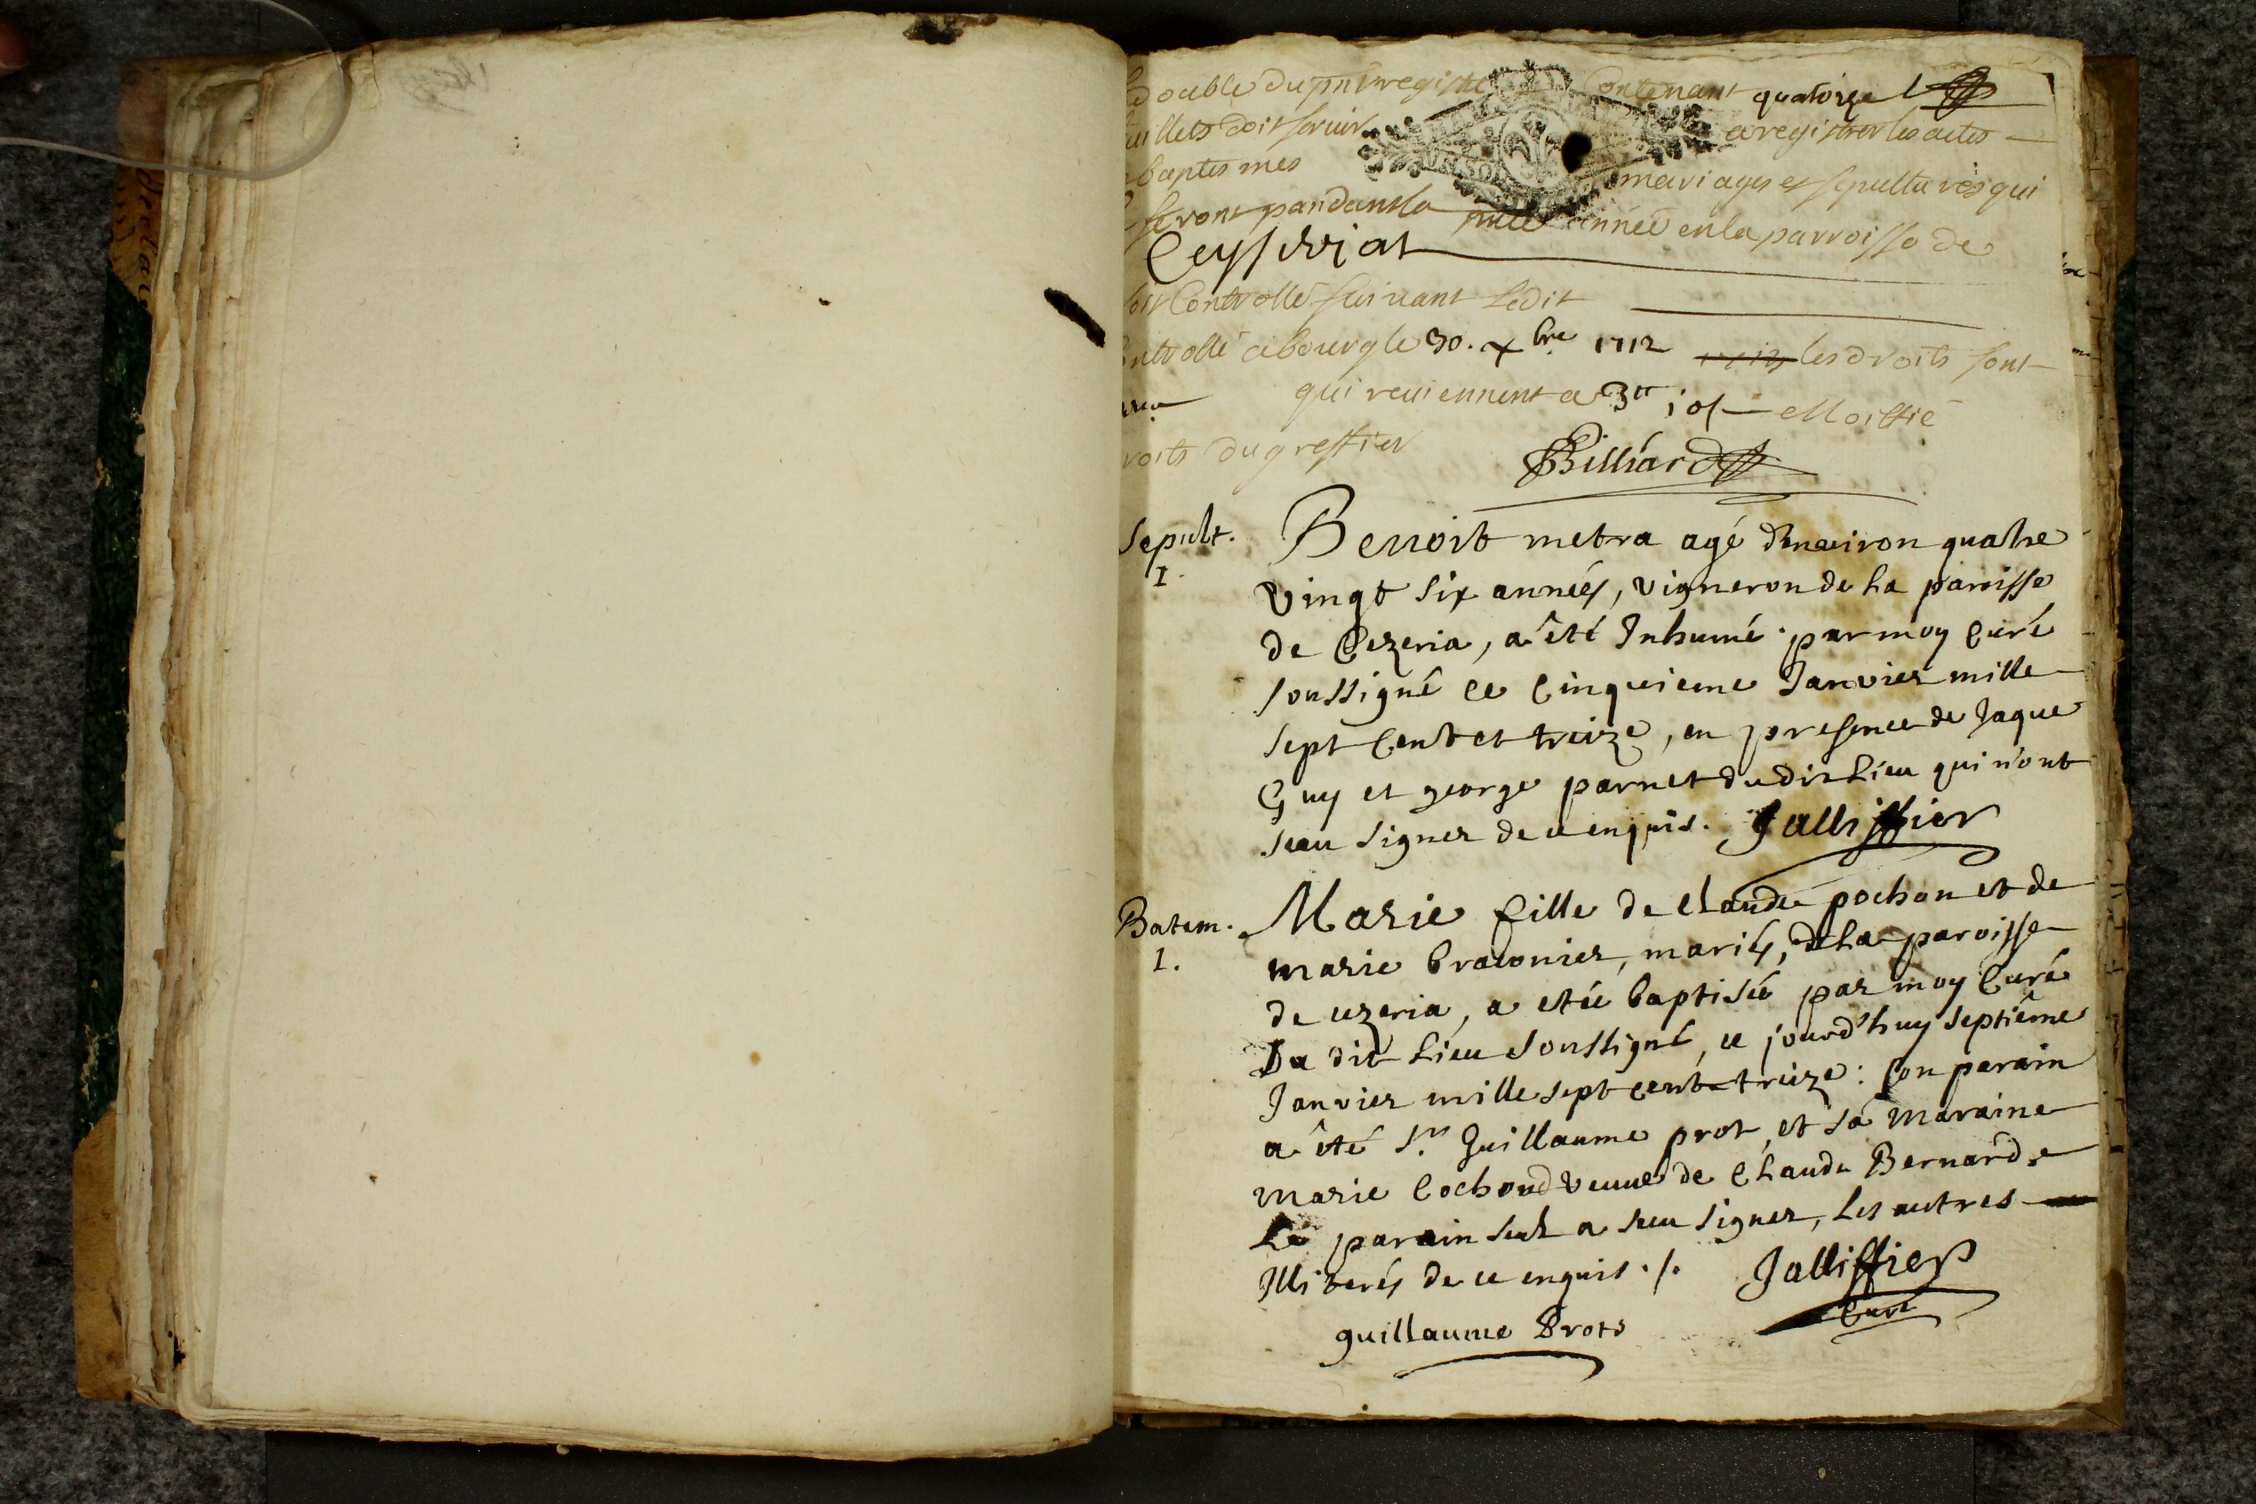 double du pnt registre Contenant quatorze
uillets doit servir a registrer les actes
baptesmes mariages et sepultures qui
se feront pandant la pnte année en la parroisse de
Ceyseriat
soit Controllé suivant ledit
ntrollé a bourg le 30. xbre 1712 les droits sont
qui reviennent a 3tt 10s Moittié
roits du greffier
Billiard
Sepult.
1.
Benoit metra agé d'environ quatre
vingt six années, vigneron de La paroisse
de Cezeria, a été Inhumé par moy Curé
soussigné ce Cinquieme Janvier mille
sept Cent et treize, en presence de Jaque
Guy et george parnet du dit Lieu qui n'ont
sceu signer de ce enquis. Jalliffier
Batem.
1.
Marie fille de Claude pochon et de
marie braconier, mariés, de La paroisse
de cezeria, a etée baptisée par moy Curé
Du dit Lieu soussigné, ce jourd'huy septiême
Janvier mille sept cent treize : son parain
a été Sr. Guillaume prot, et sa maraine
marie Cochond veuve de Claude Bernard.
Le parain seul a sceu signer, Les autres
Illiterés de ce enquis ./. Jalliffier
Curé
guillaume Prots